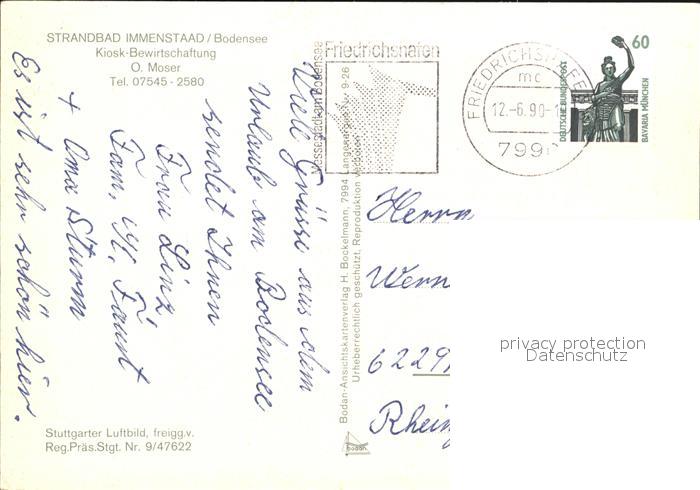 STRANDBAD IMMENSTAAD / Bodensee
Kiosk-Bewirtschaftung
O. Moser
Tel. 07545 - 2580
Viele Grüsse aus dem
Urlaub am Bodensee
sendet Ihnen
Frau Linz
Fam. W. Faust
+ Oma Sturm
Es ist sehr schön hier.
Stuttgarter Luftbild, freigg.v.
Reg.Präs.Stgt. Nr. 9/47622
Bodan-Ansichtskartenverlag H. Bockelmann, 7994 Langenargen, Nr. 9-26
Urheberrechtlich geschützt, Reproduktion verboten
bodan
Friedrichshafen
Messestadt am Bodensee
FRIEDRICHSHAFEN
mc
12.-6.90-1
799
60
DEUTSCHE BUNDESPOST
BAVARIA MÜNCHEN
Herrn
Wern
6229
Rhein
privacy protection
Datenschutz